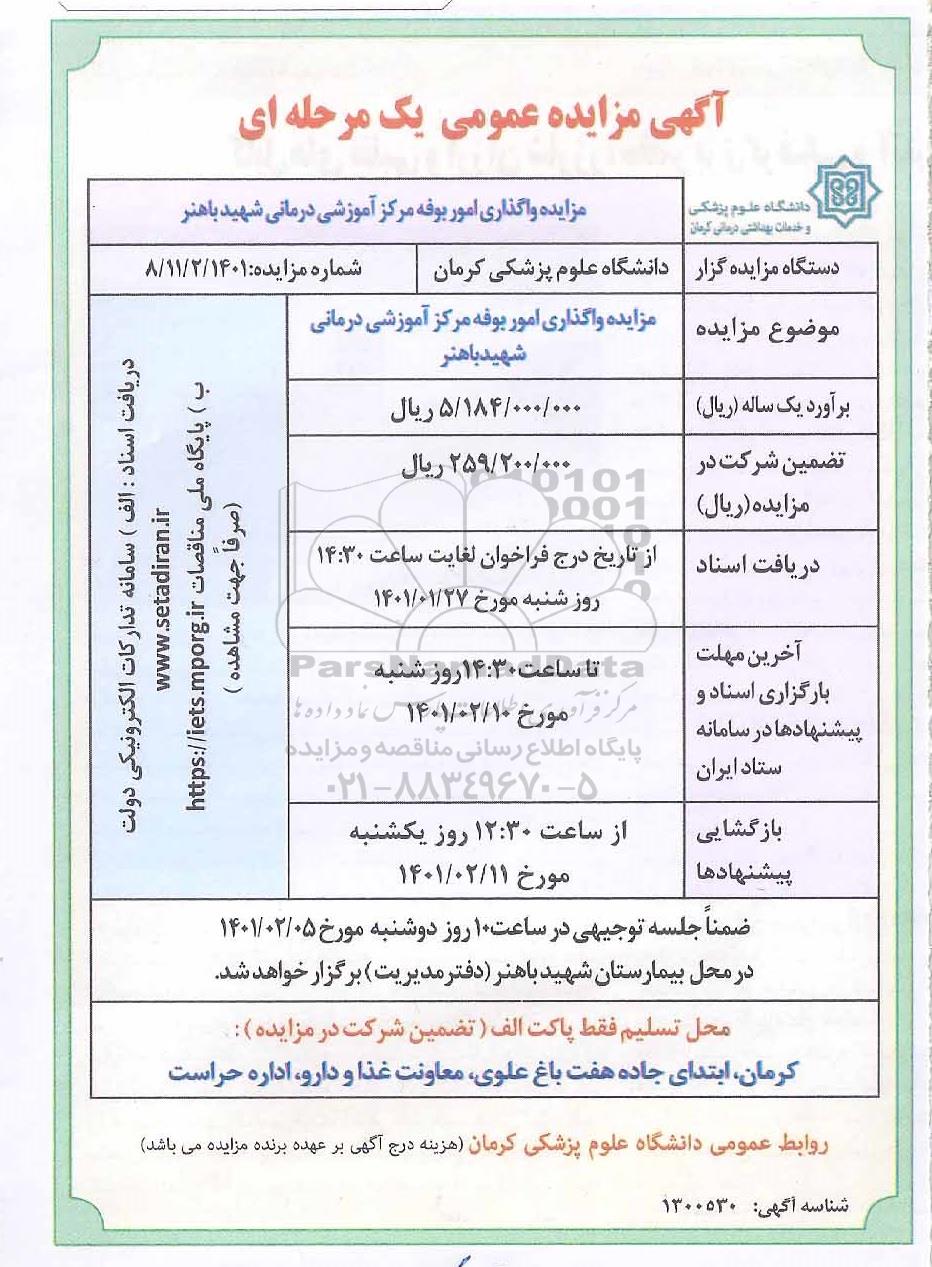 آگهی مزایده عمومی یک مرحله ای
دانشگاه علوم پزشکی
و خدمات بهداشتی درمانی کرمان
مزایده واگذاری امور بوفه مرکز آموزشی درمانی شهید باهنر
دستگاه مزایده گزار
دانشگاه علوم پزشکی کرمان
شماره مزایده:۸/۱۱/۲/۱۴۰۱
موضوع مزایده
مزایده واگذاری امور بوفه مرکز آموزشی درمانی
شهیدباهنر
برآورد یک ساله (ریال)
۵/۱۸۴/۰۰۰/۰۰۰ ریال
تضمین شرکت در
مزایده(ریال)
۲۵۹/۲۰۰/۰۰۰ ریال
دریافت اسناد
از تاریخ درج فراخوان لغایت ساعت ۱۴:۳۰
روز شنبه مورخ ۱۴۰۱/۰۱/۲۷
آخرین مهلت
بارگزاری اسناد و
پیشنهادها در سامانه
ستاد ایران
تا ساعت۱۴:۳۰روز شنبه
مورخ ۱۴۰۱/۰۲/۱۰
بازگشایی
پیشنهادها
از ساعت ۱۲:۳۰ روز یکشنبه
مورخ ۱۴۰۱/۰۲/۱۱
دریافت اسناد : الف ) سامانه تدارکات الکترونیکی دولت
www.setadiran.ir
ب ) پایگاه ملی مناقصات https://iets.mporg.ir
(صرفاً جهت مشاهده )
ParsNamadData
پایگاه اطلاع رسانی مناقصه و مزایده
۰۲۱-۸۸۳۴۹۶۷۰-۵
ضمناً جلسه توجیهی در ساعت۱۰ روز دوشنبه مورخ ۱۴۰۱/۰۲/۰۵
در محل بیمارستان شهید باهنر (دفتر مدیریت) برگزار خواهد شد.
محل تسلیم فقط پاکت الف ( تضمین شرکت در مزایده ) :
کرمان، ابتدای جاده هفت باغ علوی، معاونت غذا و دارو، اداره حراست
روابط عمومی دانشگاه علوم پزشکی کرمان (هزینه درج آگهی بر عهده برنده مزایده می باشد)
شناسه آگهی: ۱۳۰۰۵۳۰